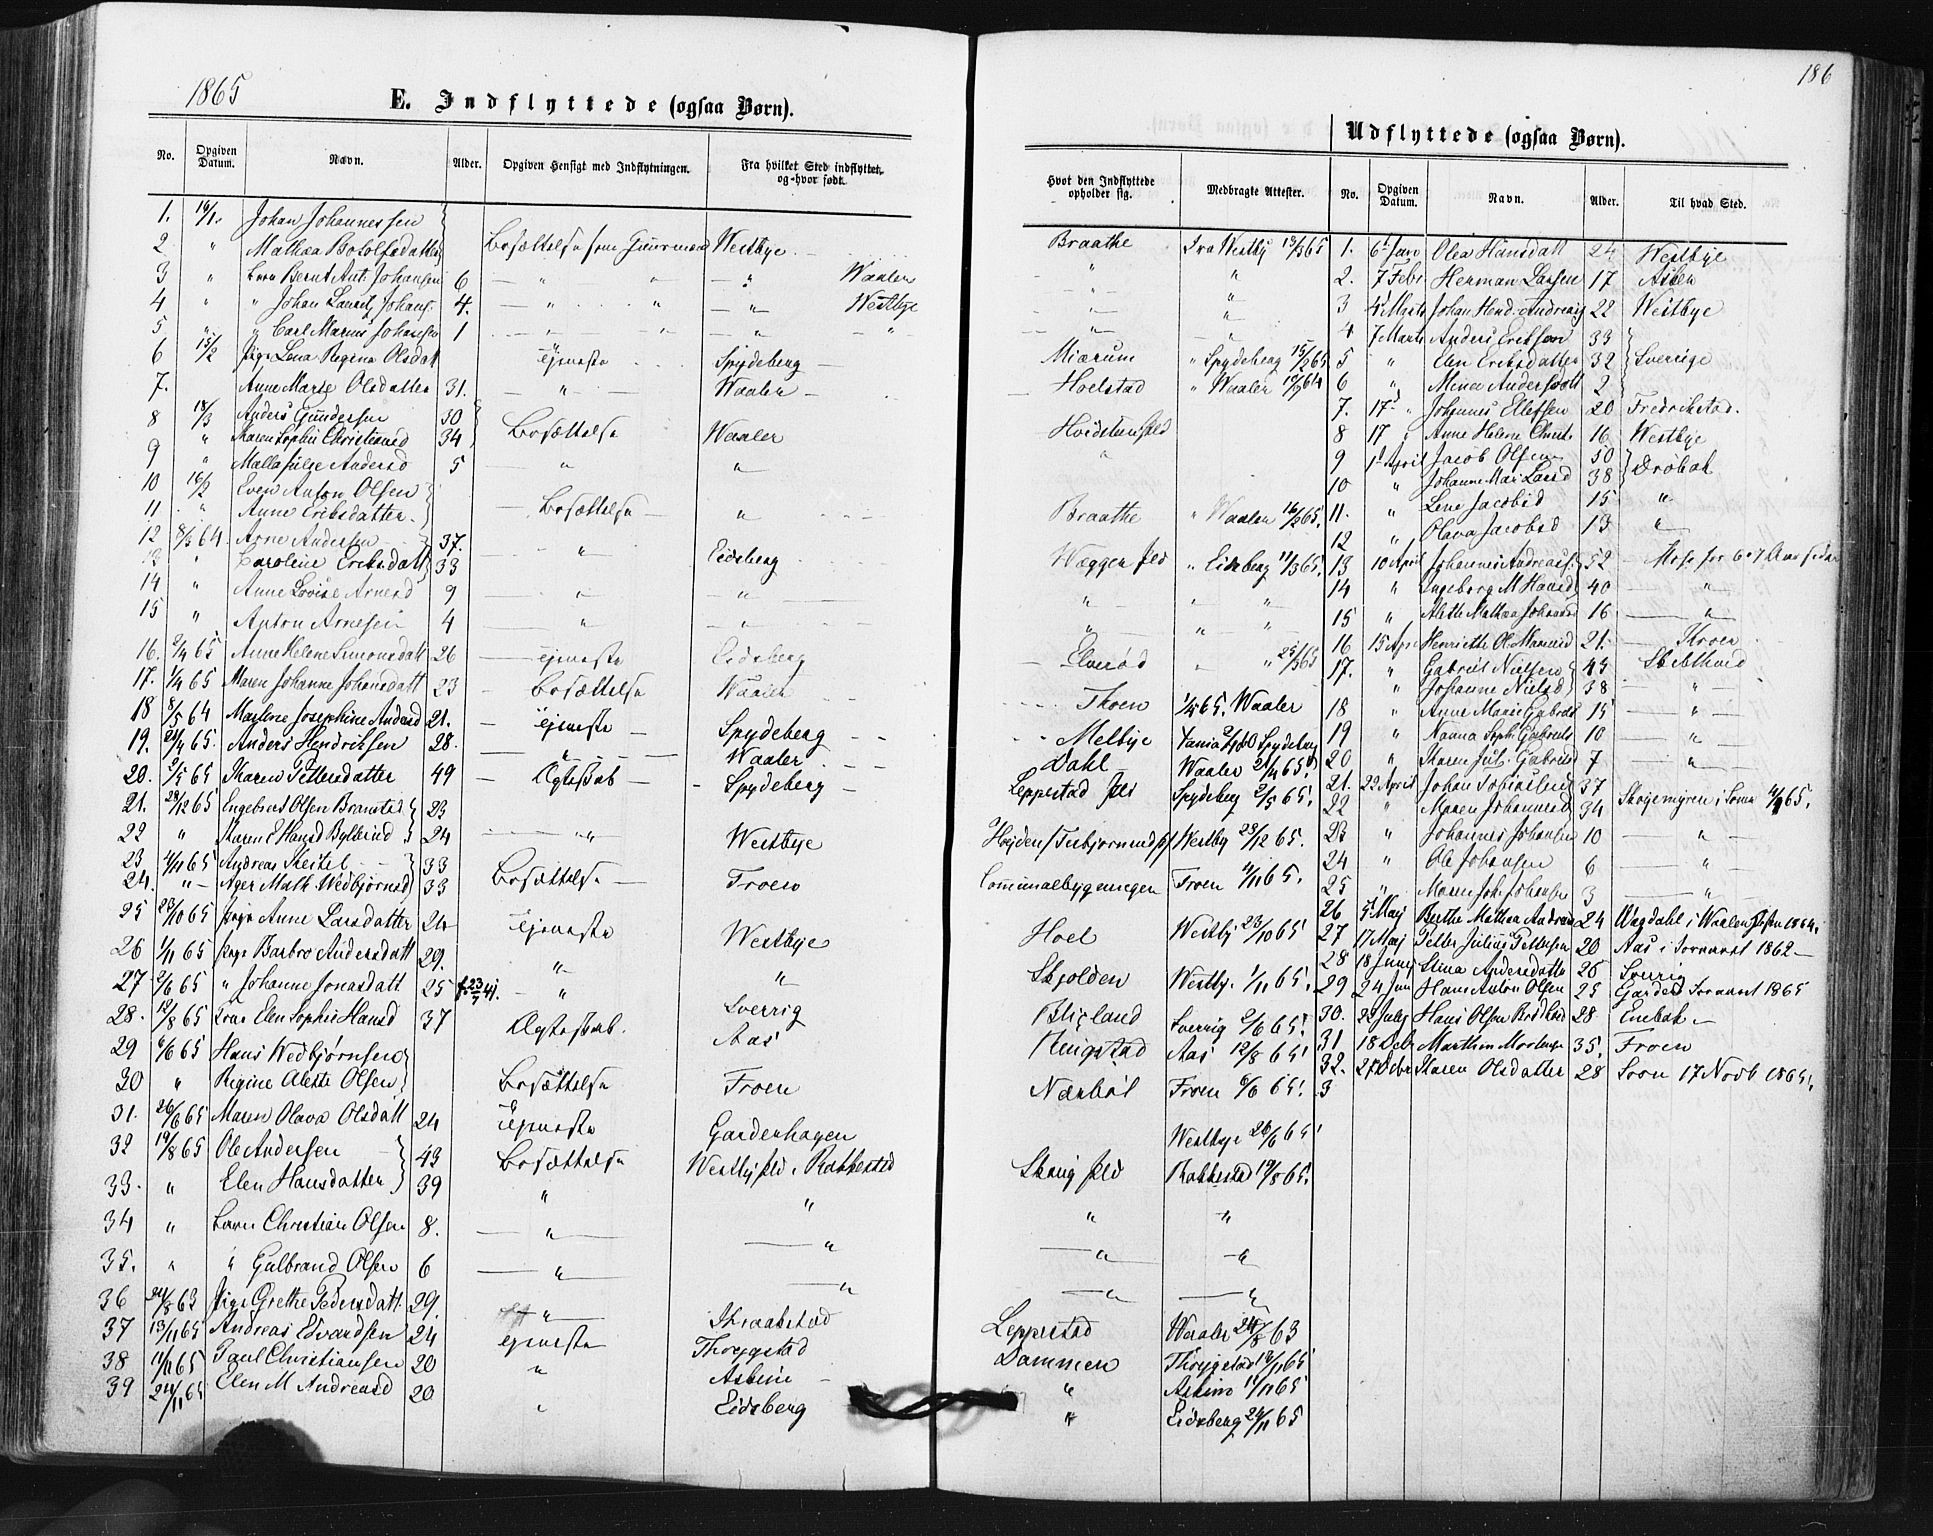 1865
E. Indflyttede (ogsaa Børn).
No. Opgiven Datum. Navn. Alder. Opgiven Hensigt med Indflytningen. Fra hvilket Sted indflyttet, og hvor født.
1. Johan Johannessen
2 " Mathea Bosolfsdatter Bosættelse som Westbye
3 " Barn Bernt Ant. Johansen 6 " " " Waaler
4 " " Johan Lauritz Johans. 4. " " " Westbye
5 " " Carl Marius Johansen 1 " " " "
6 15/2 Pige Lena Regina Olsdatt Tjeneste Spydeberg
7. Anne Marte Olsdatter 31. " Waaler
8 18/3 Anders Gundersen 50
9 " Maren Sophie Christiansd 34 Bosættelse Waaler
Andersd 5 " "
10 16/2 Even Anton Olsen
11 " Anne Eriksdatter Bosættelse "
12 8/3 64 Arne Andersen 37.
13 " Caroline Eriksdatt 33 " Eidsberg
14 " Anne Lovise Arnesd 9 " "
15 " Anton Arnesen 4 " "
16. 9/4 65 Anne Helene Simonsdatt 26 Tjeneste Eidsberg
17. 1/4 65 Maren Johanne Johansdatt 23 Bosættelse Waaler
18 8/5 64 Marlene Josephine Andersd 21. Tjeneste Spydeberg
19. 21/4 65. Anders Hendriksen 28. " Waaler
20. 2/5 65 Maren Pettersdatter 49 Ægteskab Spydeberg
21. 29/12 65 Engebret Olsen Branstad 23
22 " Karen E Hansd 24 " Westbye
23 11/11 65 Andreas 33
24. " Wedbjørnsd 33 Bosættelse Froen
25 23/10 65 Pige Anne Larsdatter 24 Tjeneste Westbye
26 1/11 65 Pige Barbro Andersdatt 29. " "
27 2/6 65 " Johanne Jonasdatt 25 " Sverrig
28. 12/8 65 Elen Sophie Hansd 37 Ægteskab. Aas
29 6/6 65 Hans Wedbjørnsen
30 " Regine Alette Olsen Bosættelse Froen
31. 26/6 65 Maren Olava Olsdatt 24 Tjeneste Garderhagen
32 19/8 65 Ole Andersen 43 Bosættelse Rakkestad
33. " Elen Hansdatter 39 " "
34 " Barn Christian Olsen 8. " "
35. " " Gulbrand Olsen 6 " "
36 24/8 63 Pige Grethe Pedersdatt. 29. " Kraakstad
37 13/11 65 Andreas Edvardsen 24 Tjeneste Thrygstad
38 11/11 65 Paul Christiansen 20 " Askim
39 24/11 65 Elen M Andreasd 20 " Eidsberg
186
Udflyttede (ogsaa Børn).
Hvor den Indflyttede opholder sig. Medbragte Attester. No. Opgiven Datum. Navn. Alder. Til hvad Sted.
Braathe Fra Westby 13/3 65 1. 6 Janr Olea Hansdatt 24 Westbye
" " 2. 7 Febr Herman Larsen 17
" " 3 4 Marts Johan Hend. 22 Westbye
" " 4 7 Marts Anders Eriksen 33
Miærum " Spydeberg 15/2 65 5 " Elen Eriksdatter 32 Sverrige
Hoelstad " Waaler 6 " Mina Andersdatt 2
7. 17 " Johannes Ellefsen 20 Fredrikstad.
8 17 " Anne Helene Christ 16 Westbye
" 9 1 April Jacob Olsen 50
10 " Johanne Mari Larsd 38 Drøbak
Braathe " Waaler 16/2 65. 11. " Lene Jacobsd 15 "
12 " Olava Jacobsd 13 "
" Eidsberg 11/3 65. 13 10 April Johannes Andreas. 52 Moss for 6 a 7 Aar siden
" " " 14 " Ingeborg M Hansd 40 "
" " " 15 " Alette Mathea Johannsd 16 "
Elverød " " 25/3 65 16 15 Apr Henriette 21. Kroer
17. " Gabriel Nielsen 43
" Johanne Nielsd 38 "
Thoen 1/4 65. Waaler 18 " Anne Marie Gabrielsd 15 "
Melbye Spydeberg 19 " Nanna Soph. Gabriels 10 "
Dahl Waaler 21/4 65. 20 " Karen Jul. Gabrielsd 7 "
Leppestad Spydeberg 2/5 65. 21. 22 April Johan 37
22 " Maren Johannesd 34 65.
Westby 29/12 65. 23 " Johannes Johansen 10 "
24 " Ole Johansen 6 "
Communalbygningen Froen 11/11 65. 25 " Maren Joh. Johansen 3 "
26 5 Maj Berthe Mathea 24 i Waaler 1864.
Hoel Westby 23/10 65 27 17 Maj Petter Julius Pettersen 20 Aas i 1862
28 18 Juni Stina Andersdatter 26 Sverrig
Skjolden Westby. 1/11 65. 29 24 Juni Hans Anton Olsen 25 1865
Sverrig 2/6 65. 30. 22 July Hans Olsen 28
Ringstad Aas 12/8 65. 31 18 Decbr Marthin 35. Froen
Nærbøl Froen 6/6 65. 32. 27 Decbr Karen Olsdatter 28 Soon 17 Novb 1865.
3
Westbye 26/6 65.
Rakkestad 19/8 65.
" "
" "
" "
Leppestad Waaler 24/8 63
Dammen Thrygstad 13/11 65
" Askim 11/11 65
" Eidsberg 24/11 65